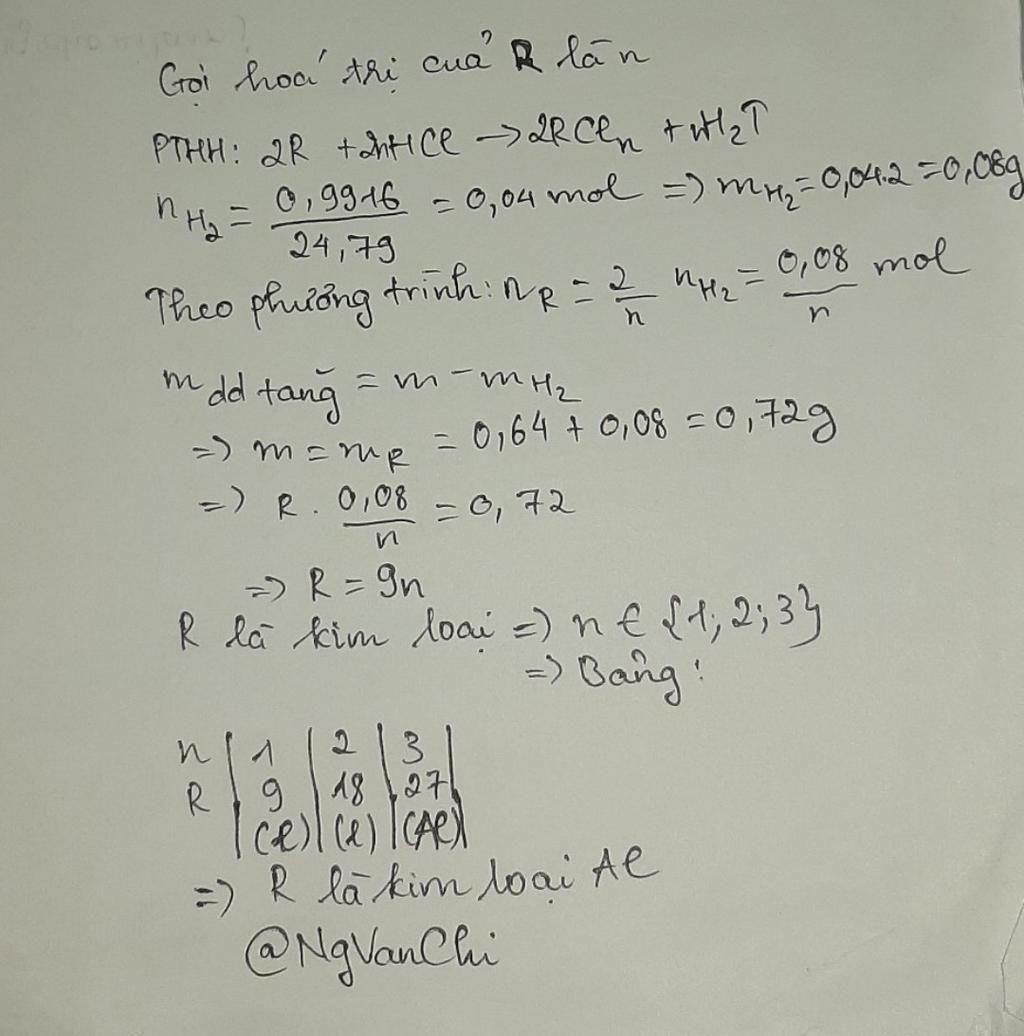 Gọi hoá trị của R là n
PTHH: 2R + 2nHCl → 2RCln + nH2↑
nH2 = 0,9916/24,79 = 0,04 mol => mH2 = 0,04.2 = 0,08g
Theo phương trình: nR = 2/n nH2 = 0,08/n mol
m dd tăng = m - mH2
=> m = mR = 0,64 + 0,08 = 0,72g
=> R . 0,08/n = 0,72
=> R = 9n
R là kim loại => n ∈ {1; 2; 3}
=> Bảng:
n | 1 | 2 | 3 |
R | 9 | 18 | 27 |
| (l) | (l) | (Al) |
=> R là kim loại Al
@NgVanChi